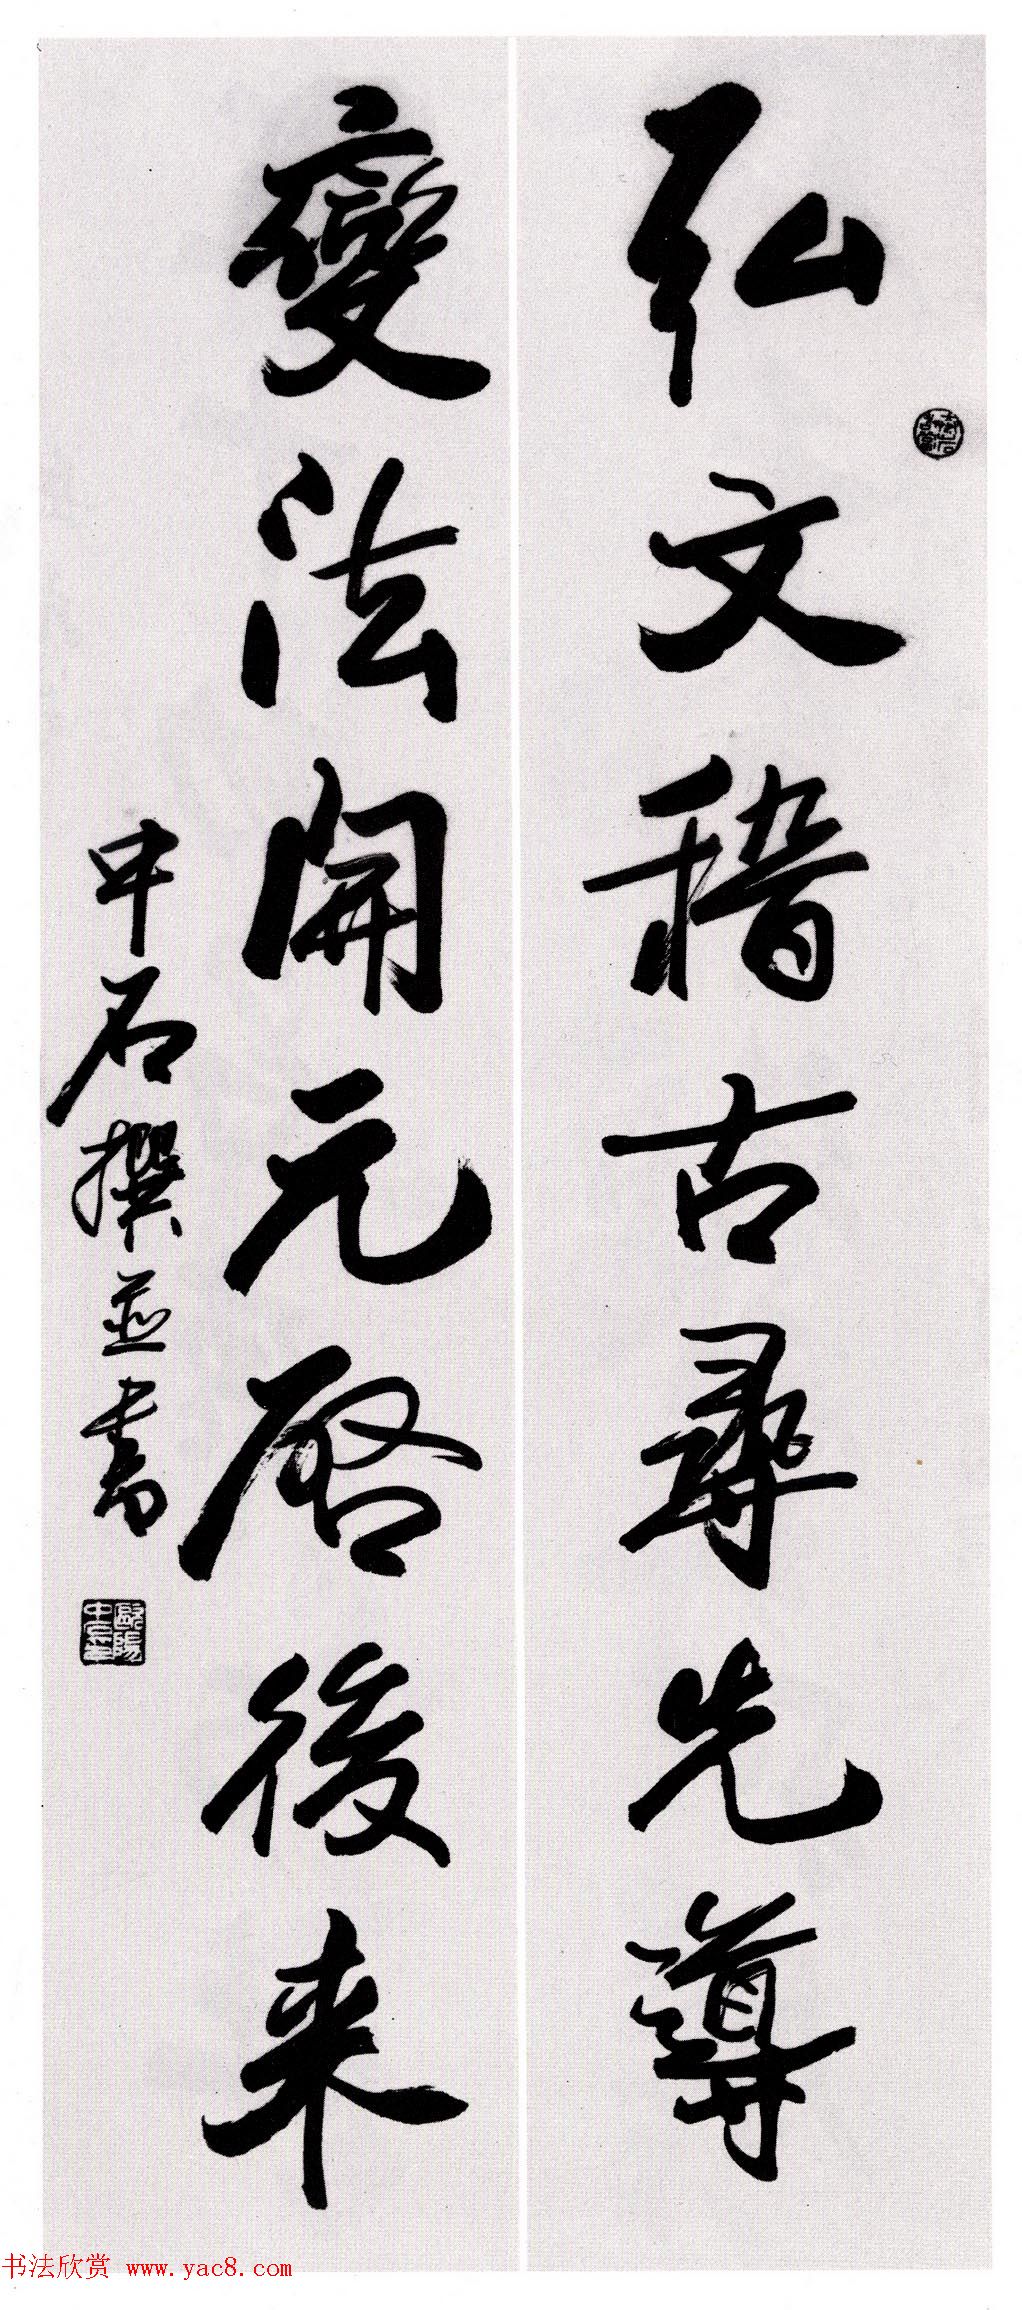 弘文稽古尋先導
變法開元啓後来
中石撰並書
歐陽中石
书法欣赏 www.yac8.com